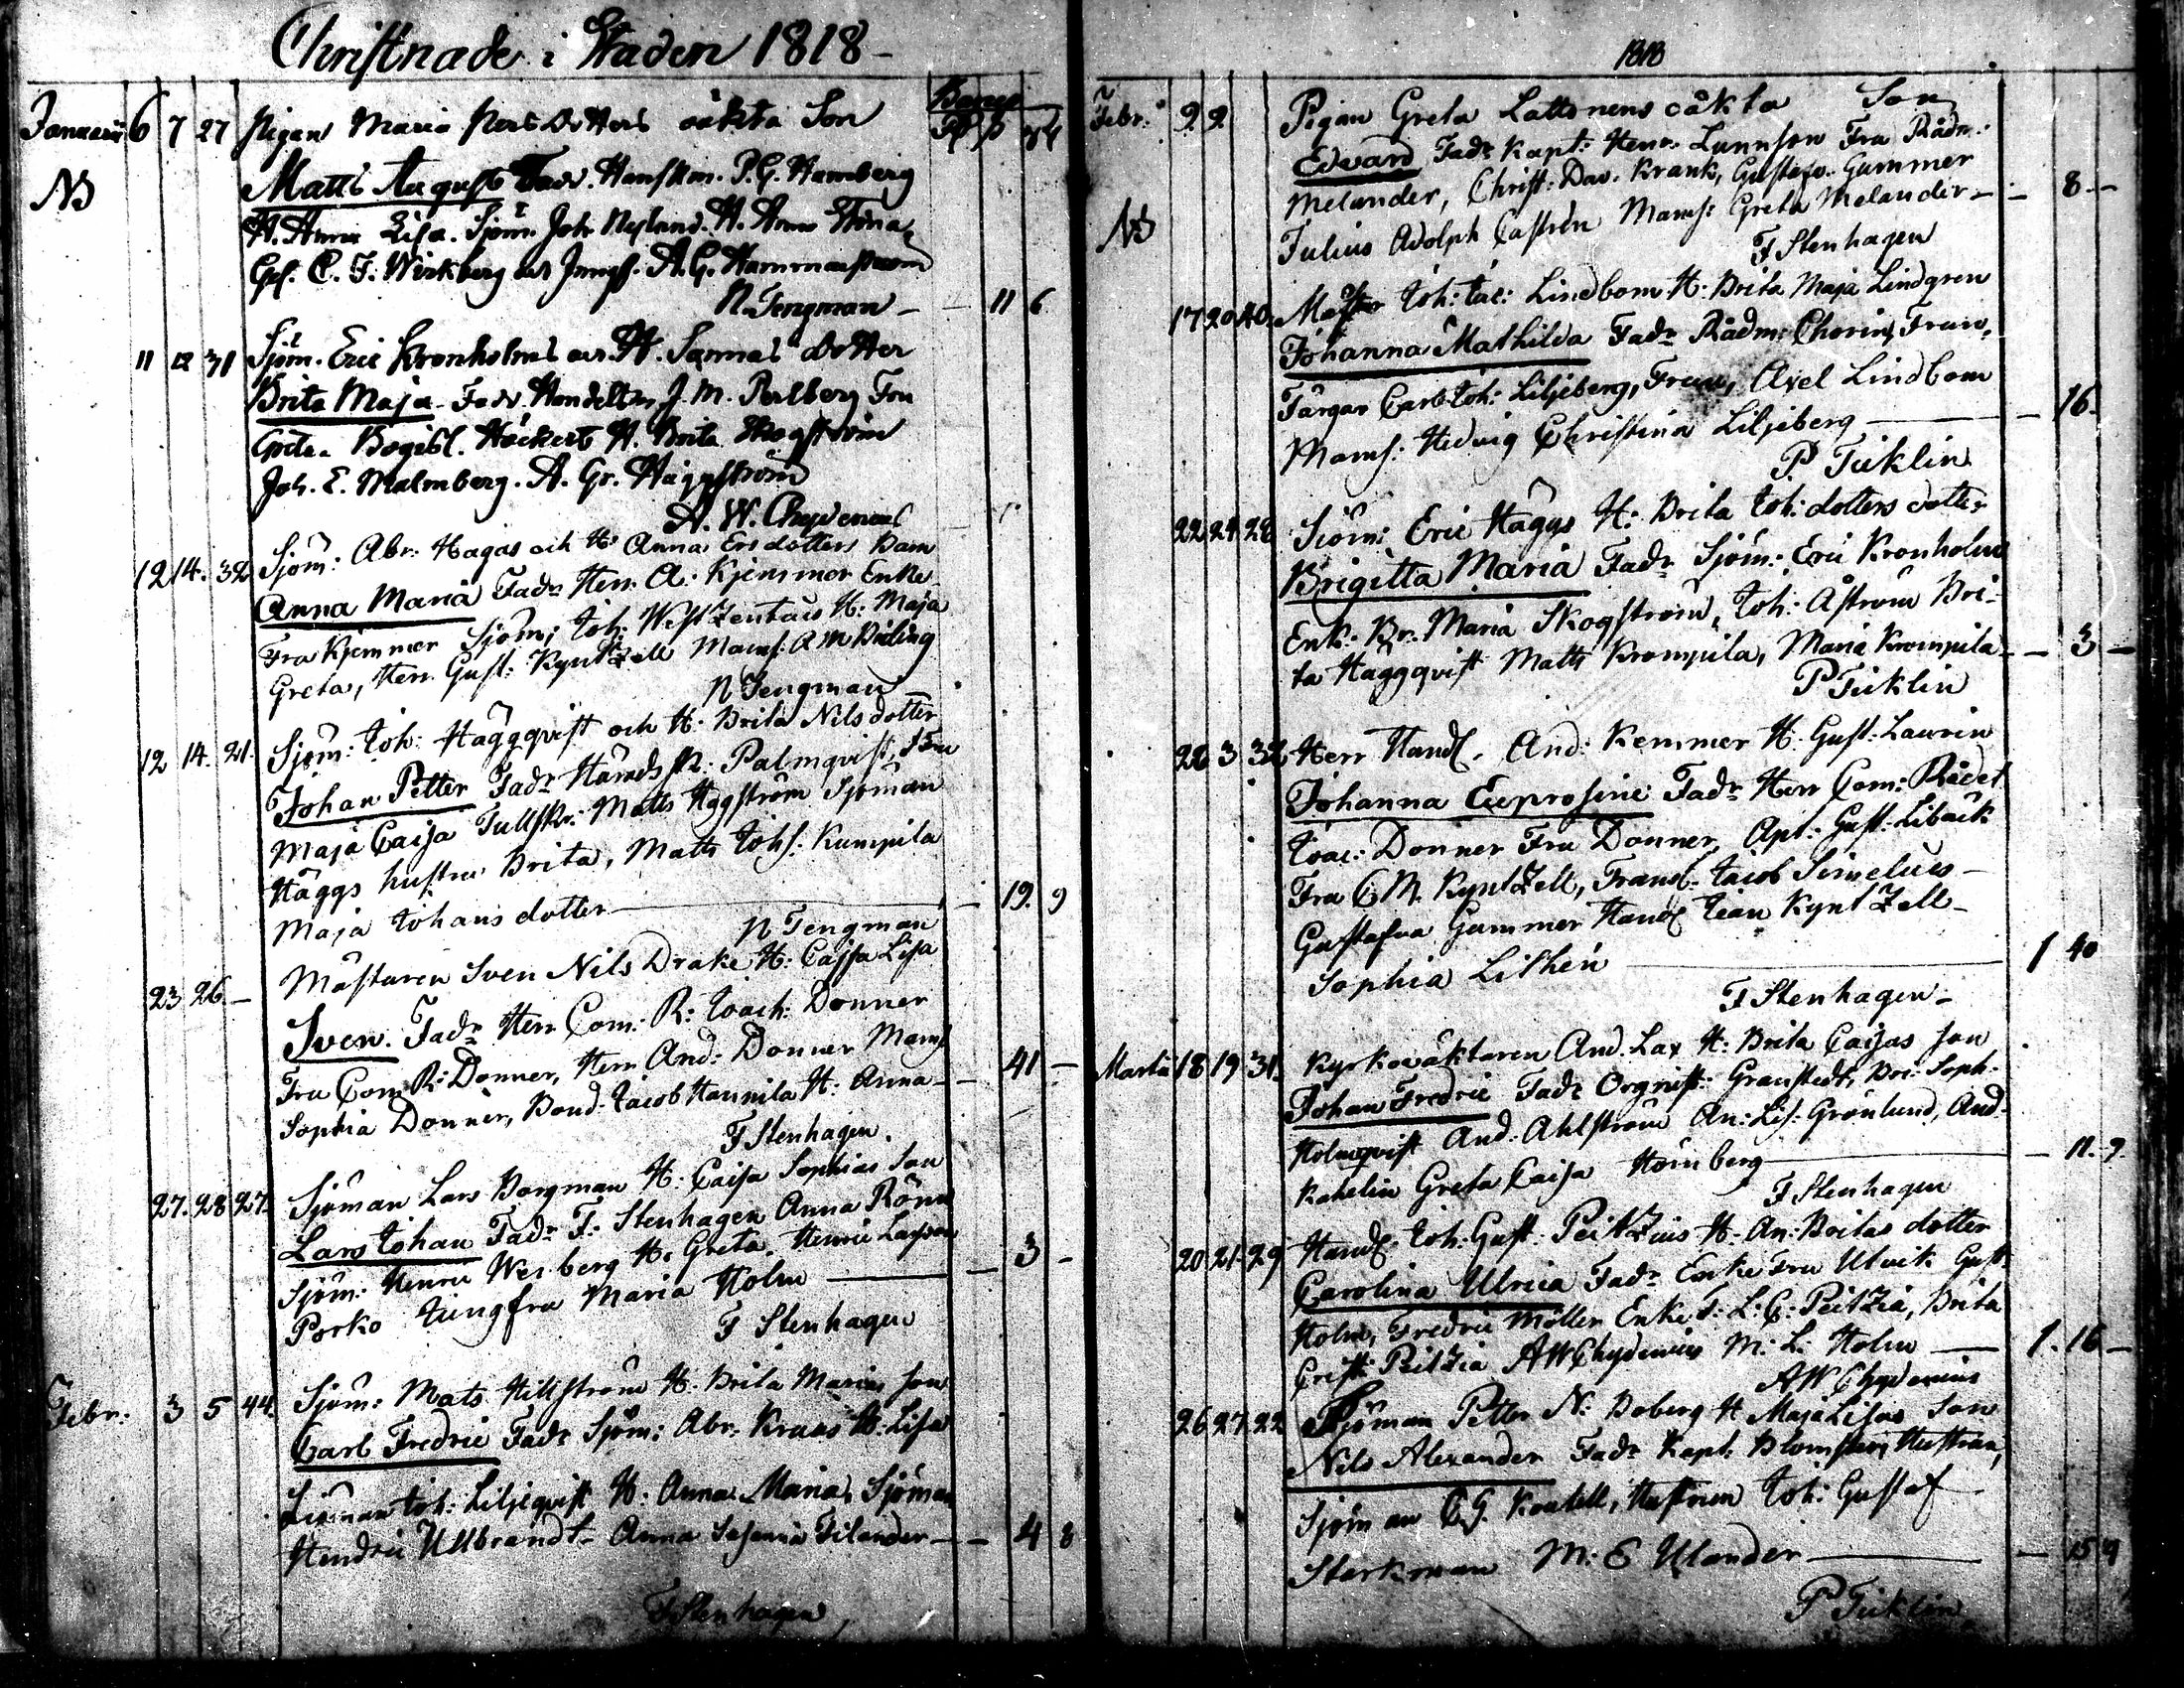 Christnade i Staden 1818 –
Januarii 6 7 27 Pigans Maria Persdotters oäkta Son
NB Matts August Fadr. Hanskm. P. G. Hamberg
H. Anna Lisa. Sjöm. Joh Nylund. H. Anna Stina,
Gef. C. F. Wirkberg och Jungf. A. G. Hammarström
N. Tengman – 11 6
11 12 31 Sjöm. Eric Kronholms och H. Sannas dotter
Brita Maja. Fadr. Handelsm. J. M. Perlberg Fru
Greta. Bogesl. Höckert H. Brita Skogström
Joh. E. Malmberg. A. Gr. Häggström
A. W. Chydenius
12 14. 32 Sjöm: Abr: Hagas och H: Anna Ersdotters Barn
Anna Maria Fadr Herr A: Kjemmer Enke
Fru Kjemmer Sjöm: Joh: WestZentius H: Maja
Greta, Herr Gust: KyntZell Mams: A M
N Tengman
12 14. 21. Sjöm: Joh: Häggqvist och H: Brita Nilsdotter
Johan Petter Fadr Häradssk. Palmqvist,
Maja Caisa Tullskr: Matts Häggström Sjöman
Häggs hustru Brita, Matts Johs: Kumpila
Maja Johans dotter – 19. 9
N Tengman
23 26 – Mästaren Sven Nils Drake H: Cajsa Lisa
Sven. Fadr Herr Com: R: Joach: Donner
Fru Com R: Donner, Herr And: Donner Mams 41 –
Sophia Donner, Bond: Jacob Hannila H: Anna –
F Stenhagen.
27. 28 27. Sjöman Lars Borgman H: Caisa Sophias Son
Lars Johan Fadr F: Stenhagen Anna Rönn
Sjöm: Henric Wesberg H: Greta. Henric Larsson 3 –
Porko Jungfru Maria Holm
F Stenhagen
Febr: 3 5 44. Sjöm: Mats Hillström H: Brita Marias Son
Carl Fredric Fadr Sjöm: Abr: Kraas H: Lisa
Sjöman Joh: Liljeqvist H: Anna Maria, Sjöman
Hendric Ullbrandt – Anna Susanna Filander – 4 8
F Stenhagen
1818
Febr: 9. 9. Pigan Greta Lattonens oäkta Son
Edvard Fadr Kapt: Henr: Lunnson Fru Rådm:
Melander, Christ: Dav. Krank, Gustafv. Gummer 8 –
NB Julius Adolph Castrén Mams: Greta Melander –
F Stenhagen
17 20 40. Mäster Joh: Jac: Lindbom H: Brita Maja Lindgren
Johanna Mathilda Fadr Rådm: Chorin, Frun,
Färgar Carl Joh: Liljeberg, Frun, Axel Lindbom
Mams: Hedvig Christina Liljeberg – 16.
P Ticklin
22 24 28 Sjöm: Eric Häggs H: Brita Joh: dotters dotter
Brigitta Maria Fadr Sjöm: Eric Kronholm
Enk: Br. Maria Skogström, Joh: Åström Bri-
ta Häggqvist Matts Krompila, Maria Krompila – 3 –
P Ticklin
28 3 32 Herr Handl. And: Kemmer H: Gust: Laurin
Johanna Euprosine Fadr Herr Com: Rådet
Joac: Donner Fru Donner, Apt: Gust: Libäck
Fru C M. KyntZell, Jacob Simelius –
Gustafva Gummer Handl Jean KyntZell –
Sophia Lithén 1 40
F Stenhagen –
Martii 18 19 31. Kyrkovaktaren And. Lax H: Brita Caijas Son
Johan Fredric Fadr Orgnist: Granstedt, Bri: Soph-
Holmqvist And: Ahlström An: Lis: Grönlund, And-
Kahelin Greta Caisa Hörnberg – 11. 9.
F Stenhagen
20 21 29 Handl Joh: Gust: PeitZius H: An: Britas dotter
Carolina Ulrica Fadr Enke Fru Ulrik Gust:
Holm, Fredric Möller Enke f: L: C: PeitZia, Brita
Crist: PeitZia AW Chydenius M: L: Holm – 1. 16 –
AW Chydenius
26 27. 22 Sjöman Petter N: Boberg H Maja Lisas Son
Nils Alexander Fadr Kapt: Blomster, Hustrun,
Sjöman C G. Hustrun Joh: Gustaf
Starkman M: E Ulander – 15 9
P Ticklin